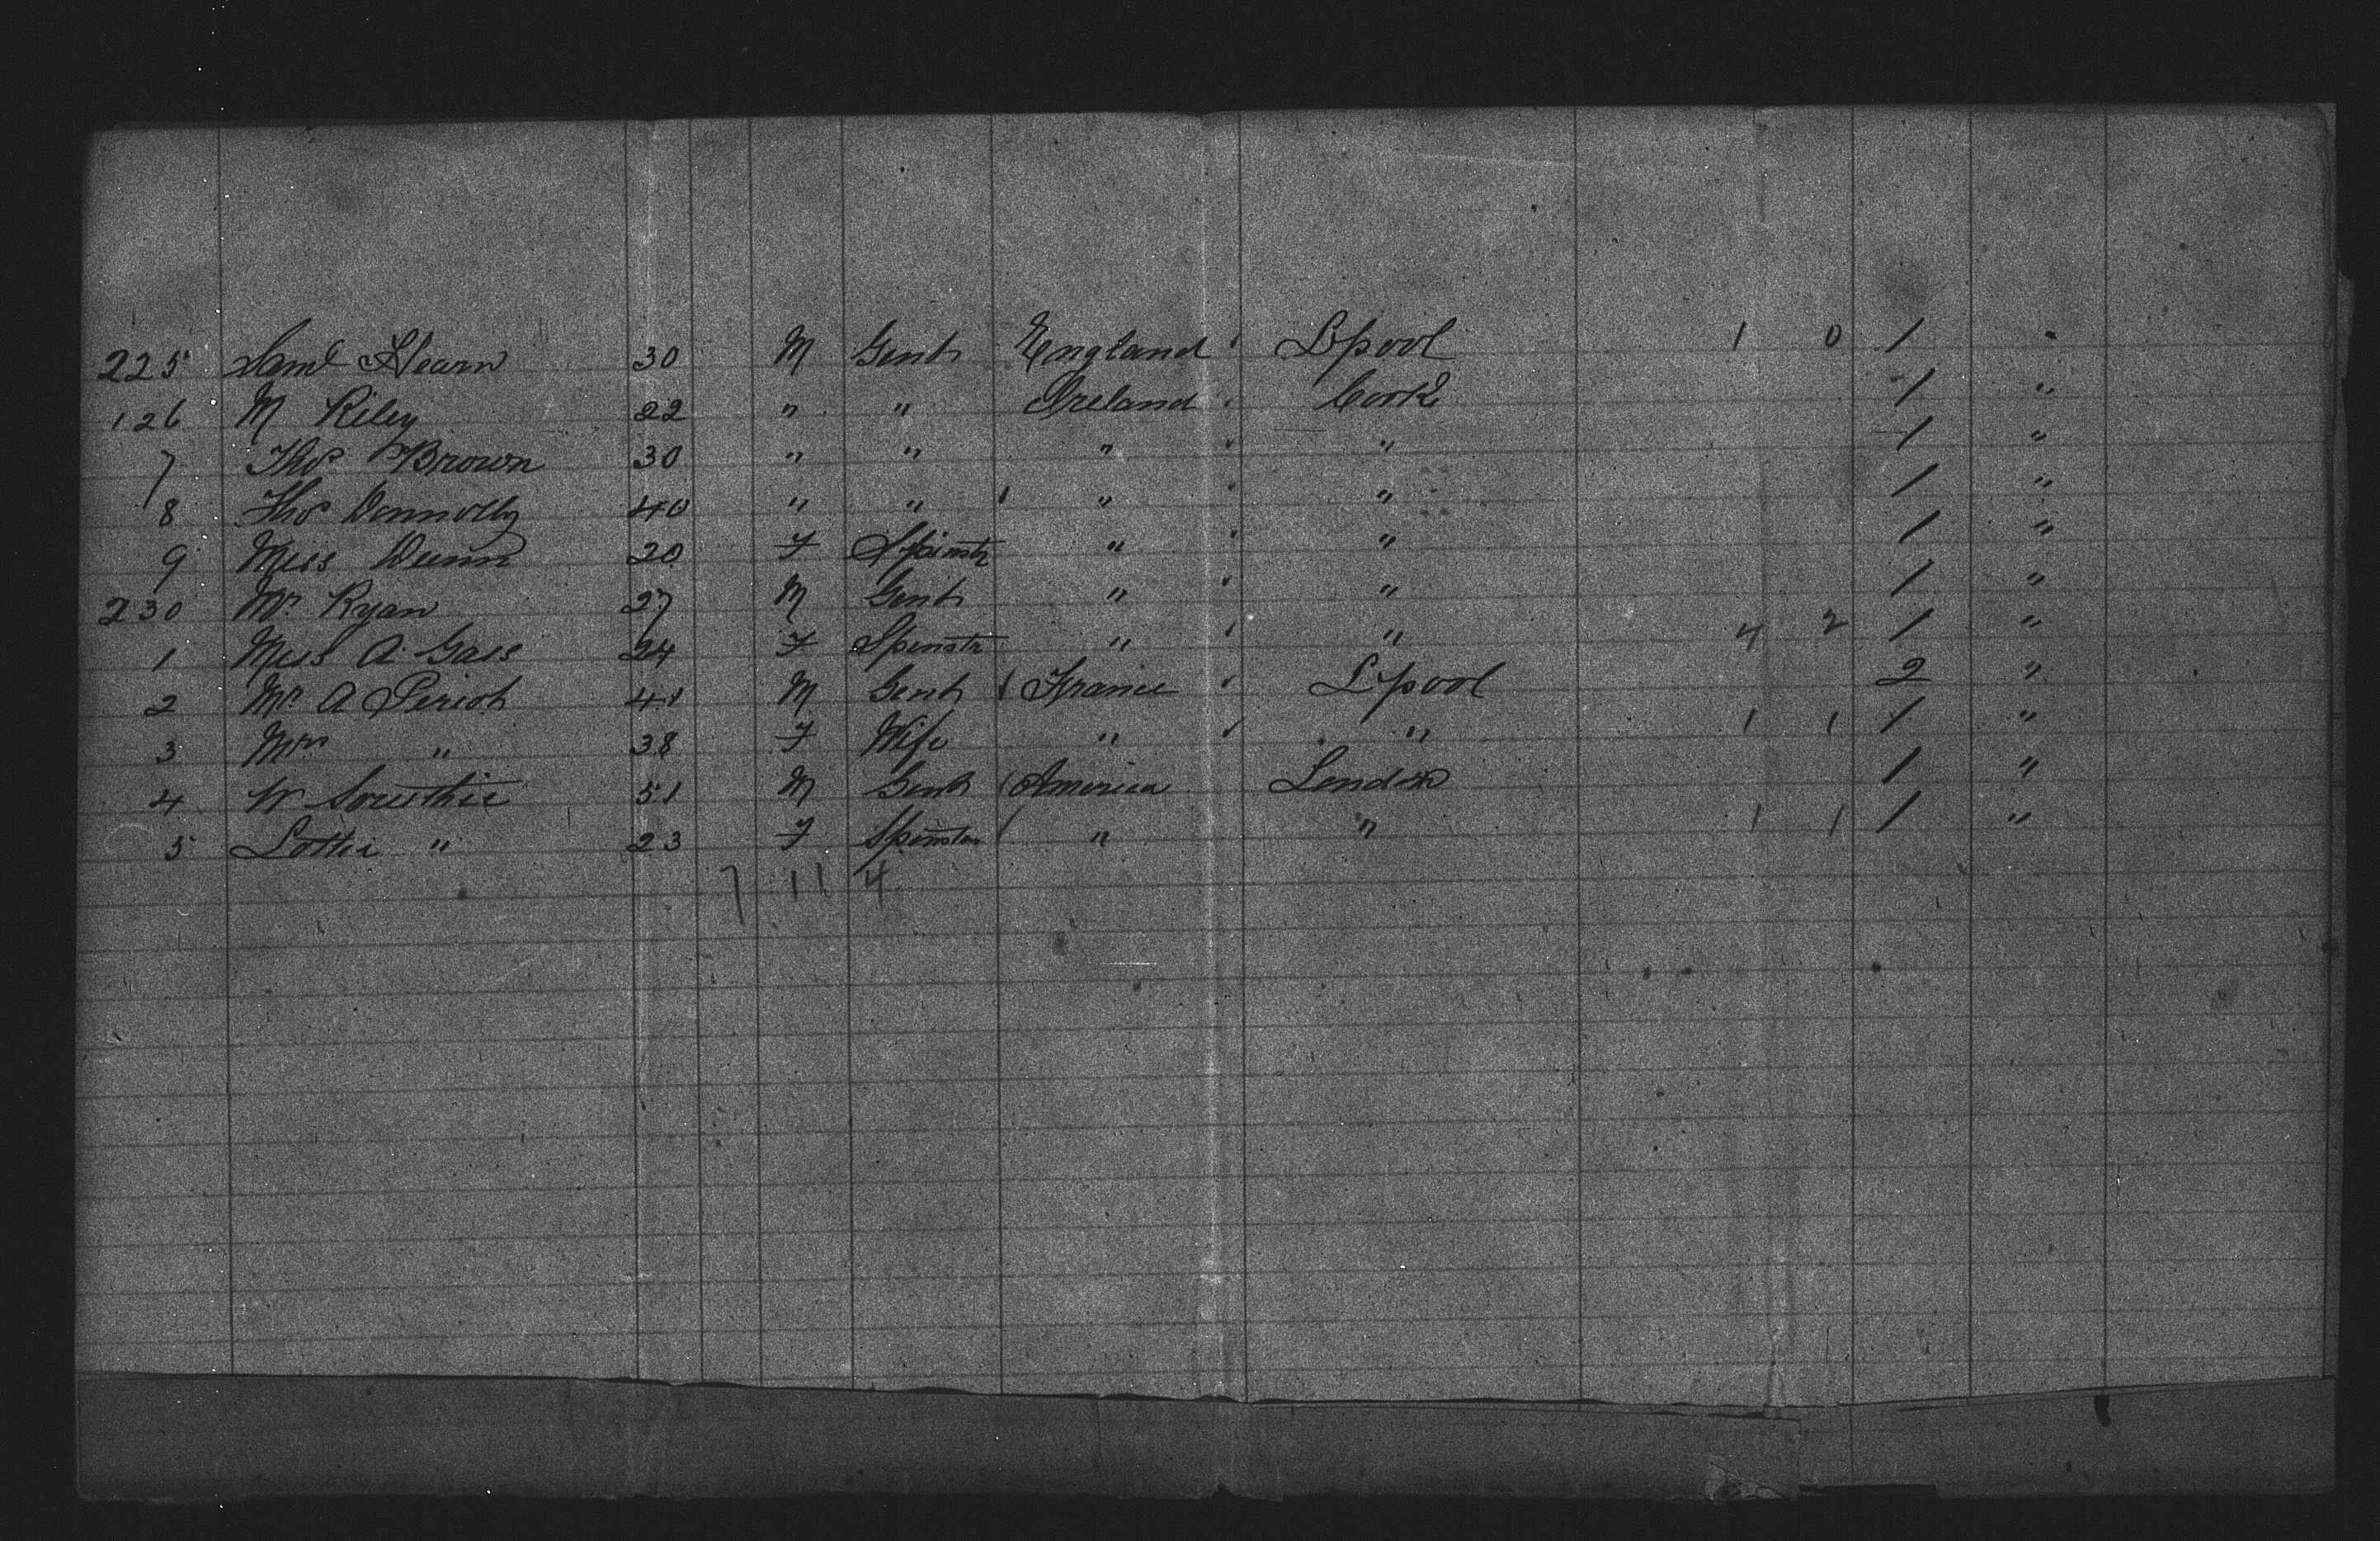 225 Saml Hearn 30 M Gent England Lpool 1 0 1 "
126 M Riley 22 " " Ireland Cork 1 "
7 Thos Brown 30 " " " " 1 "
8 Thos Donnolly 40 " " " " 1 "
9 Miss Dunn 20 F Spinstr " " 1 "
230 Mr Ryan 27 M Gent " " 1 "
1 Miss A 24 F Spinstr " " 4 2 1 "
2 Mr A 41 M Gent France Lpool 2 "
3 Mrs " 38 F Wife " " 1 1 1 "
4 W 51 M Gent America London 1 "
5 Lottie " 23 F Spinster " " 1 1 1 "
7 11 4